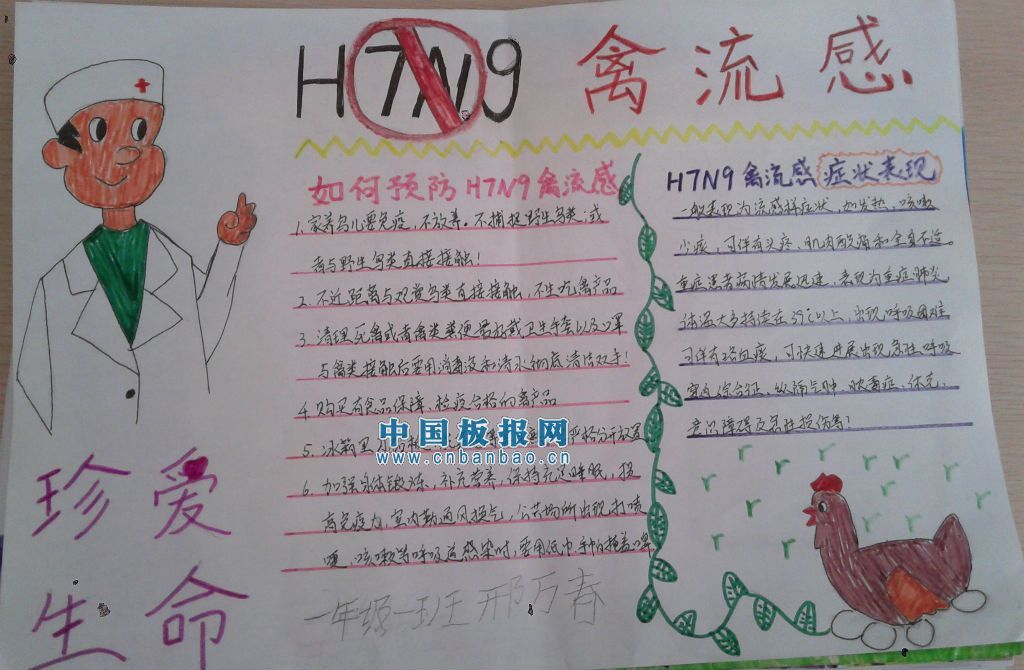 H7N9 禽流感
如何预防H7N9禽流感
1.家养鸟儿要免疫,不放养。不捕捉野生鸟类;或
者与野生鸟类直接接触!
2.不近距离与观赏鸟类直接接触,不生吃禽产品
3.清理死禽或者禽类粪便最好戴卫生手套以及口罩
与禽类接触后要用消毒液和清水彻底清洁双手!
4.购买有食品保障、检疫合格的禽产品
5.冰箱里 严格分开放置
6.加强身体锻炼、补充营养,保持充足睡眠,提
高免疫力,室内勤通风换气,公共场所出现打喷
嚏、咳嗽等呼吸道感染时,要用纸巾、手帕掩盖口鼻
一年级一班 邢万春
H7N9禽流感症状表现
一般表现为流感样症状,如发热,咳嗽
少痰,可伴有头疼、肌肉酸痛和全身不适。
重症患者病情发展迅速,表现为重症肺炎
体温大多持续在39℃以上,出现呼吸困难
可伴有咯血痰,可快速进展出现急性呼吸
窘迫综合征、纵隔气肿、脓毒症、休克、
意识障碍及急性损伤害!
珍爱
生命
中国板报网
www.cnbanbao.cn